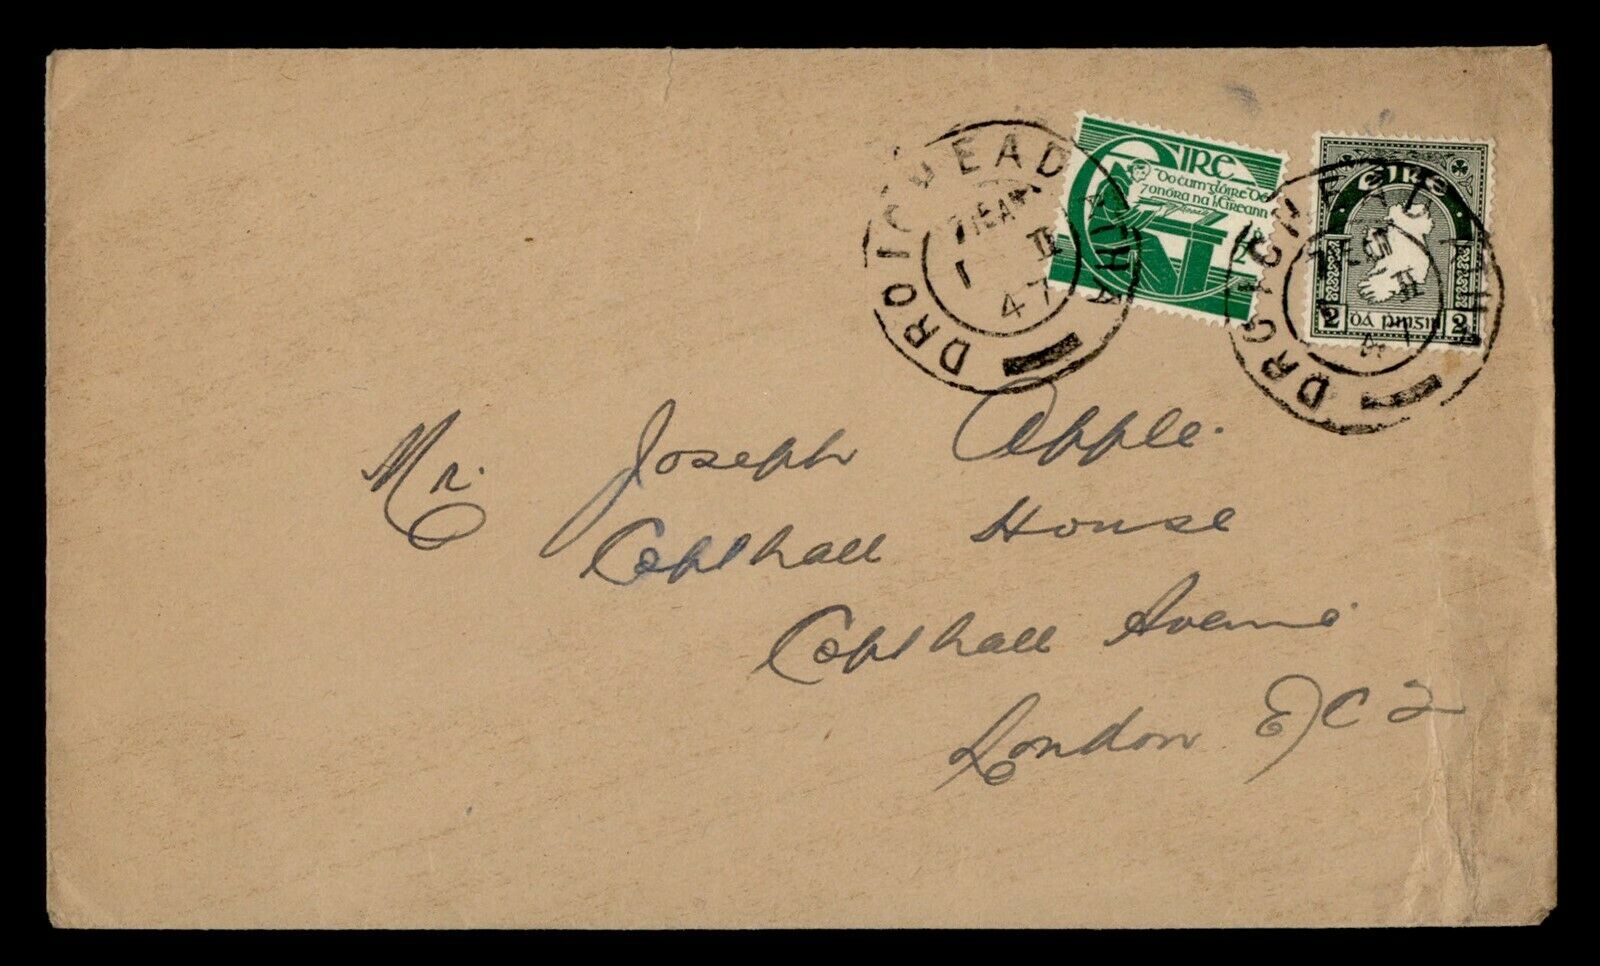 DROICHEAD ATHA
7.15 AM
1 II
47
EIRE
Do ċum glóire Dé
7 onóra na hÉireann
½
DROICHEAD ATHA
II
ÉIRE
2 DÁ PINGIN 2
Mr. Joseph Apple.
Copthall House
Copthall Avenue
London E C 2